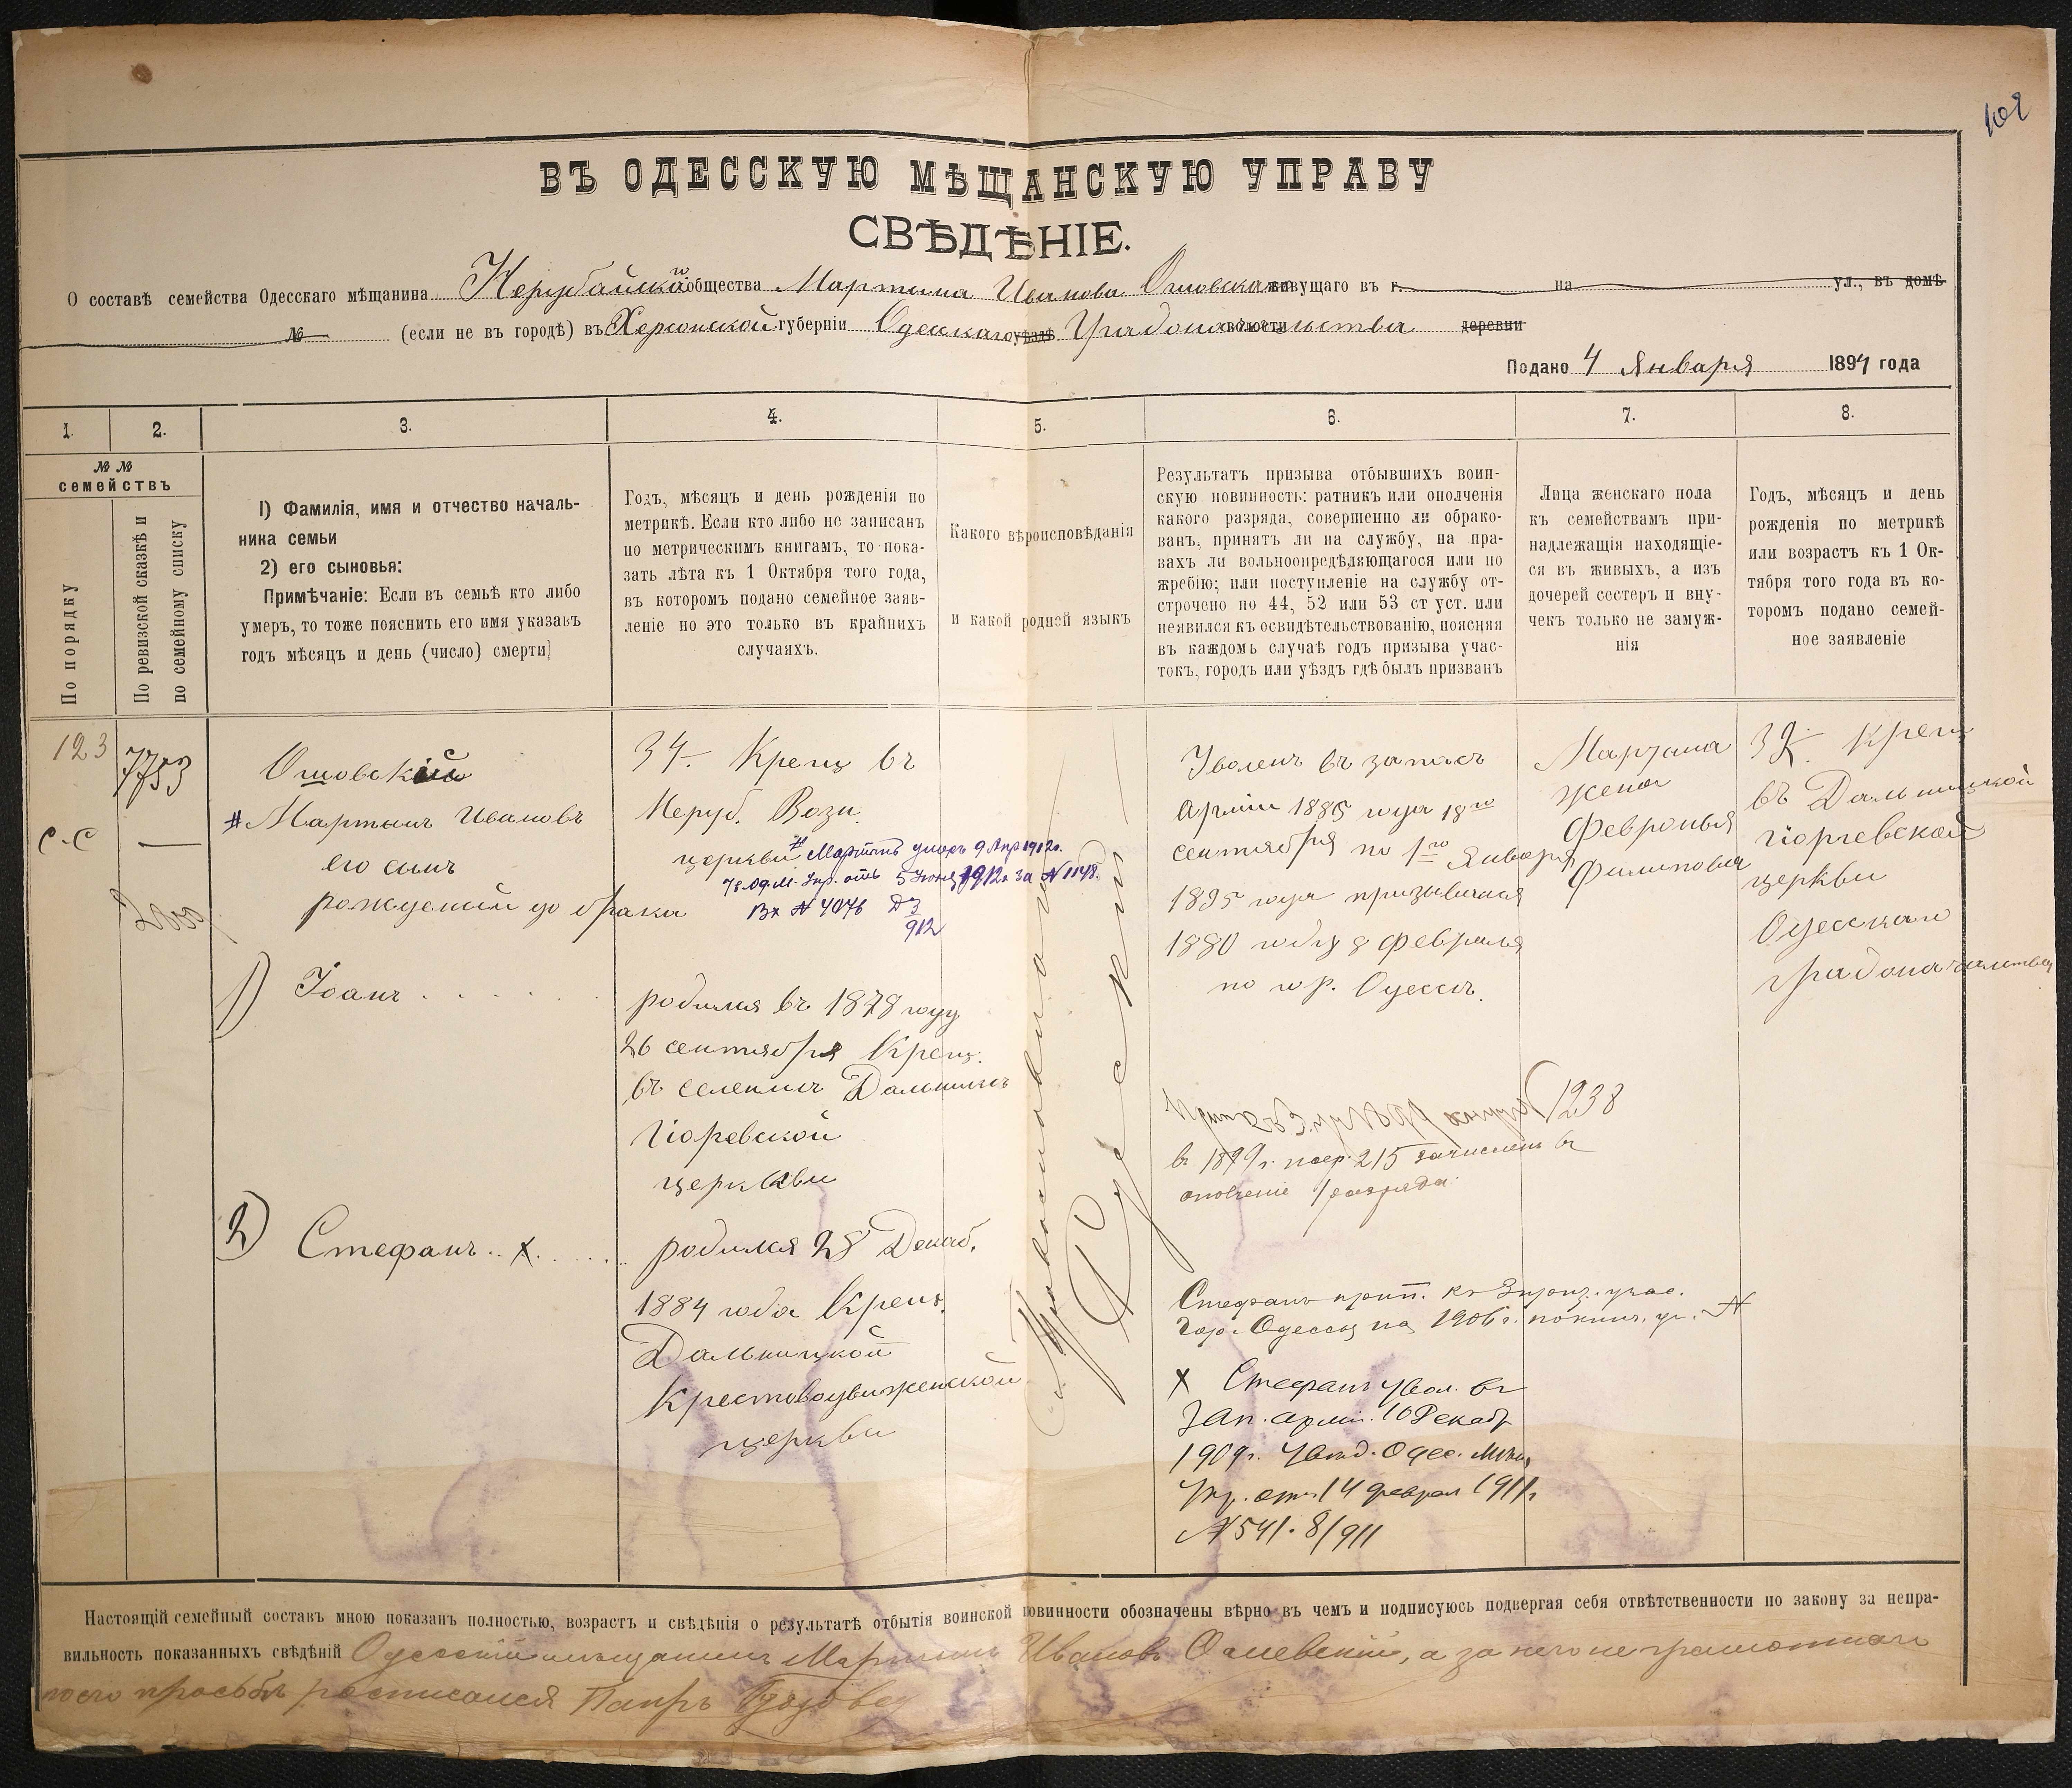 102
ВЪ ОДЕССКУЮ МѢЩАНСКУЮ УПРАВУ
СВѢДѢНІЕ.
О составѣ семейства Одесскаго мѣщанина Нерубайскаго общества Мартина Иванова живущаго въ г. на ул., въ домѣ
№ (если не въ городѣ) въ Херсонской губерніи Одесскаго уѣздѣ Градоначальства волости деревни
Подано 4 Января 1894 года
1. 2. 3. 4. 5. 6. 7. 8.
№ № семействъ
По порядку
По ревизской сказкѣ и
по семейному списку
1) Фамилія, имя и отчество началь-
ника семьи
2) его сыновья:
Примѣчаніе: Если въ семьѣ кто либо
умеръ, то тоже пояснить его имя указавъ
годъ мѣсяцъ и день (число) смерти;
Годъ, мѣсяцъ и день рожденія по
метрикѣ. Если кто либо не записанъ
по метрическимъ книгамъ, то пока-
зать лѣта къ 1 Октября того года,
въ которомъ подано семейное заяв-
леніе но это только въ крайнихъ
случаяхъ.
Какого вѣроисповѣданія
и какой родной языкъ
Результатъ призыва отбывшихъ воин-
скую повинность: ратникъ или ополченія
какого разряда, совершенно ли обрако-
ванъ, принятъ ли на службу, на пра-
вахъ ли вольноопредѣляющагося или по
жребію; или поступленіе на службу от-
строчено по 44, 52 или 53 ст уст. или
неявился къ освидѣтельствованію, поясняя
въ каждомъ случаѣ годъ призыва учас-
токъ, городъ или уѣздъ гдѣ былъ призванъ
Лица женскаго пола
къ семействамъ при-
надлежащія находящіе-
ся въ живыхъ, а изъ
дочерей сестеръ и вну-
чекъ только не замуж-
нія
Годъ, мѣсяцъ и день
рожденія по метрикѣ
или возрастъ къ 1 Ок-
тября того года въ ко-
торомъ подано семей-
ное заявленіе
123
7753
с.с
—
Мартынъ Ивановъ
его сынъ
рожденный до брака
1) Іоанъ
2) Стефанъ х
34 Крещ въ
Неруб. Возн.
церкви
# Мартынъ умеръ 9 Апр 1912г.
Од. М. Упр. отъ 5 Іюня 1912г за № 1148.
Вх № 4076
912
родился въ 1878 году
26 сентября Крещ.
въ селеніи Дальникъ
церкви
родился 28 Декаб.
1884 года Крещ.
Дальницкой
Крестовоздвиженской
церкви
Православнаго
Русскій
Уволенъ въ запасъ
Арміи 1885 года 18го
сентября по 1го Января
1895 года призывался
1880 году 8 февраля
по гор. Одессѣ.
1238
в 1899г. 215 зачисленъ въ
ополченіе 1 разряда
Стефанъ прип. къ 3 приз. учас.
гор. Одессы на 1906г.
х Стефанъ увол. въ
зап. арміи 16 Декаб
1909г. увед. Одес. Мѣщ
Упр. отъ 14 феврал 1911г
№ 541. 8/911
Мартина
жена
Февронья
Филипова
32 крещ
въ Дальницкой
церкви
Одесскаго
градоначальства
Настоящій семейный составъ мною показанъ полностью, возрастъ и свѣдѣнія о результатѣ отбытія воинской повинности обозначены вѣрно въ чемъ и подписуюсь подвергая себя отвѣтственности по закону за непра-
вильность показанныхъ свѣдѣній Одесскій мѣщанинъ Мартынъ Ивановъ, а за него не грамотнаго
по его просьбѣ росписался